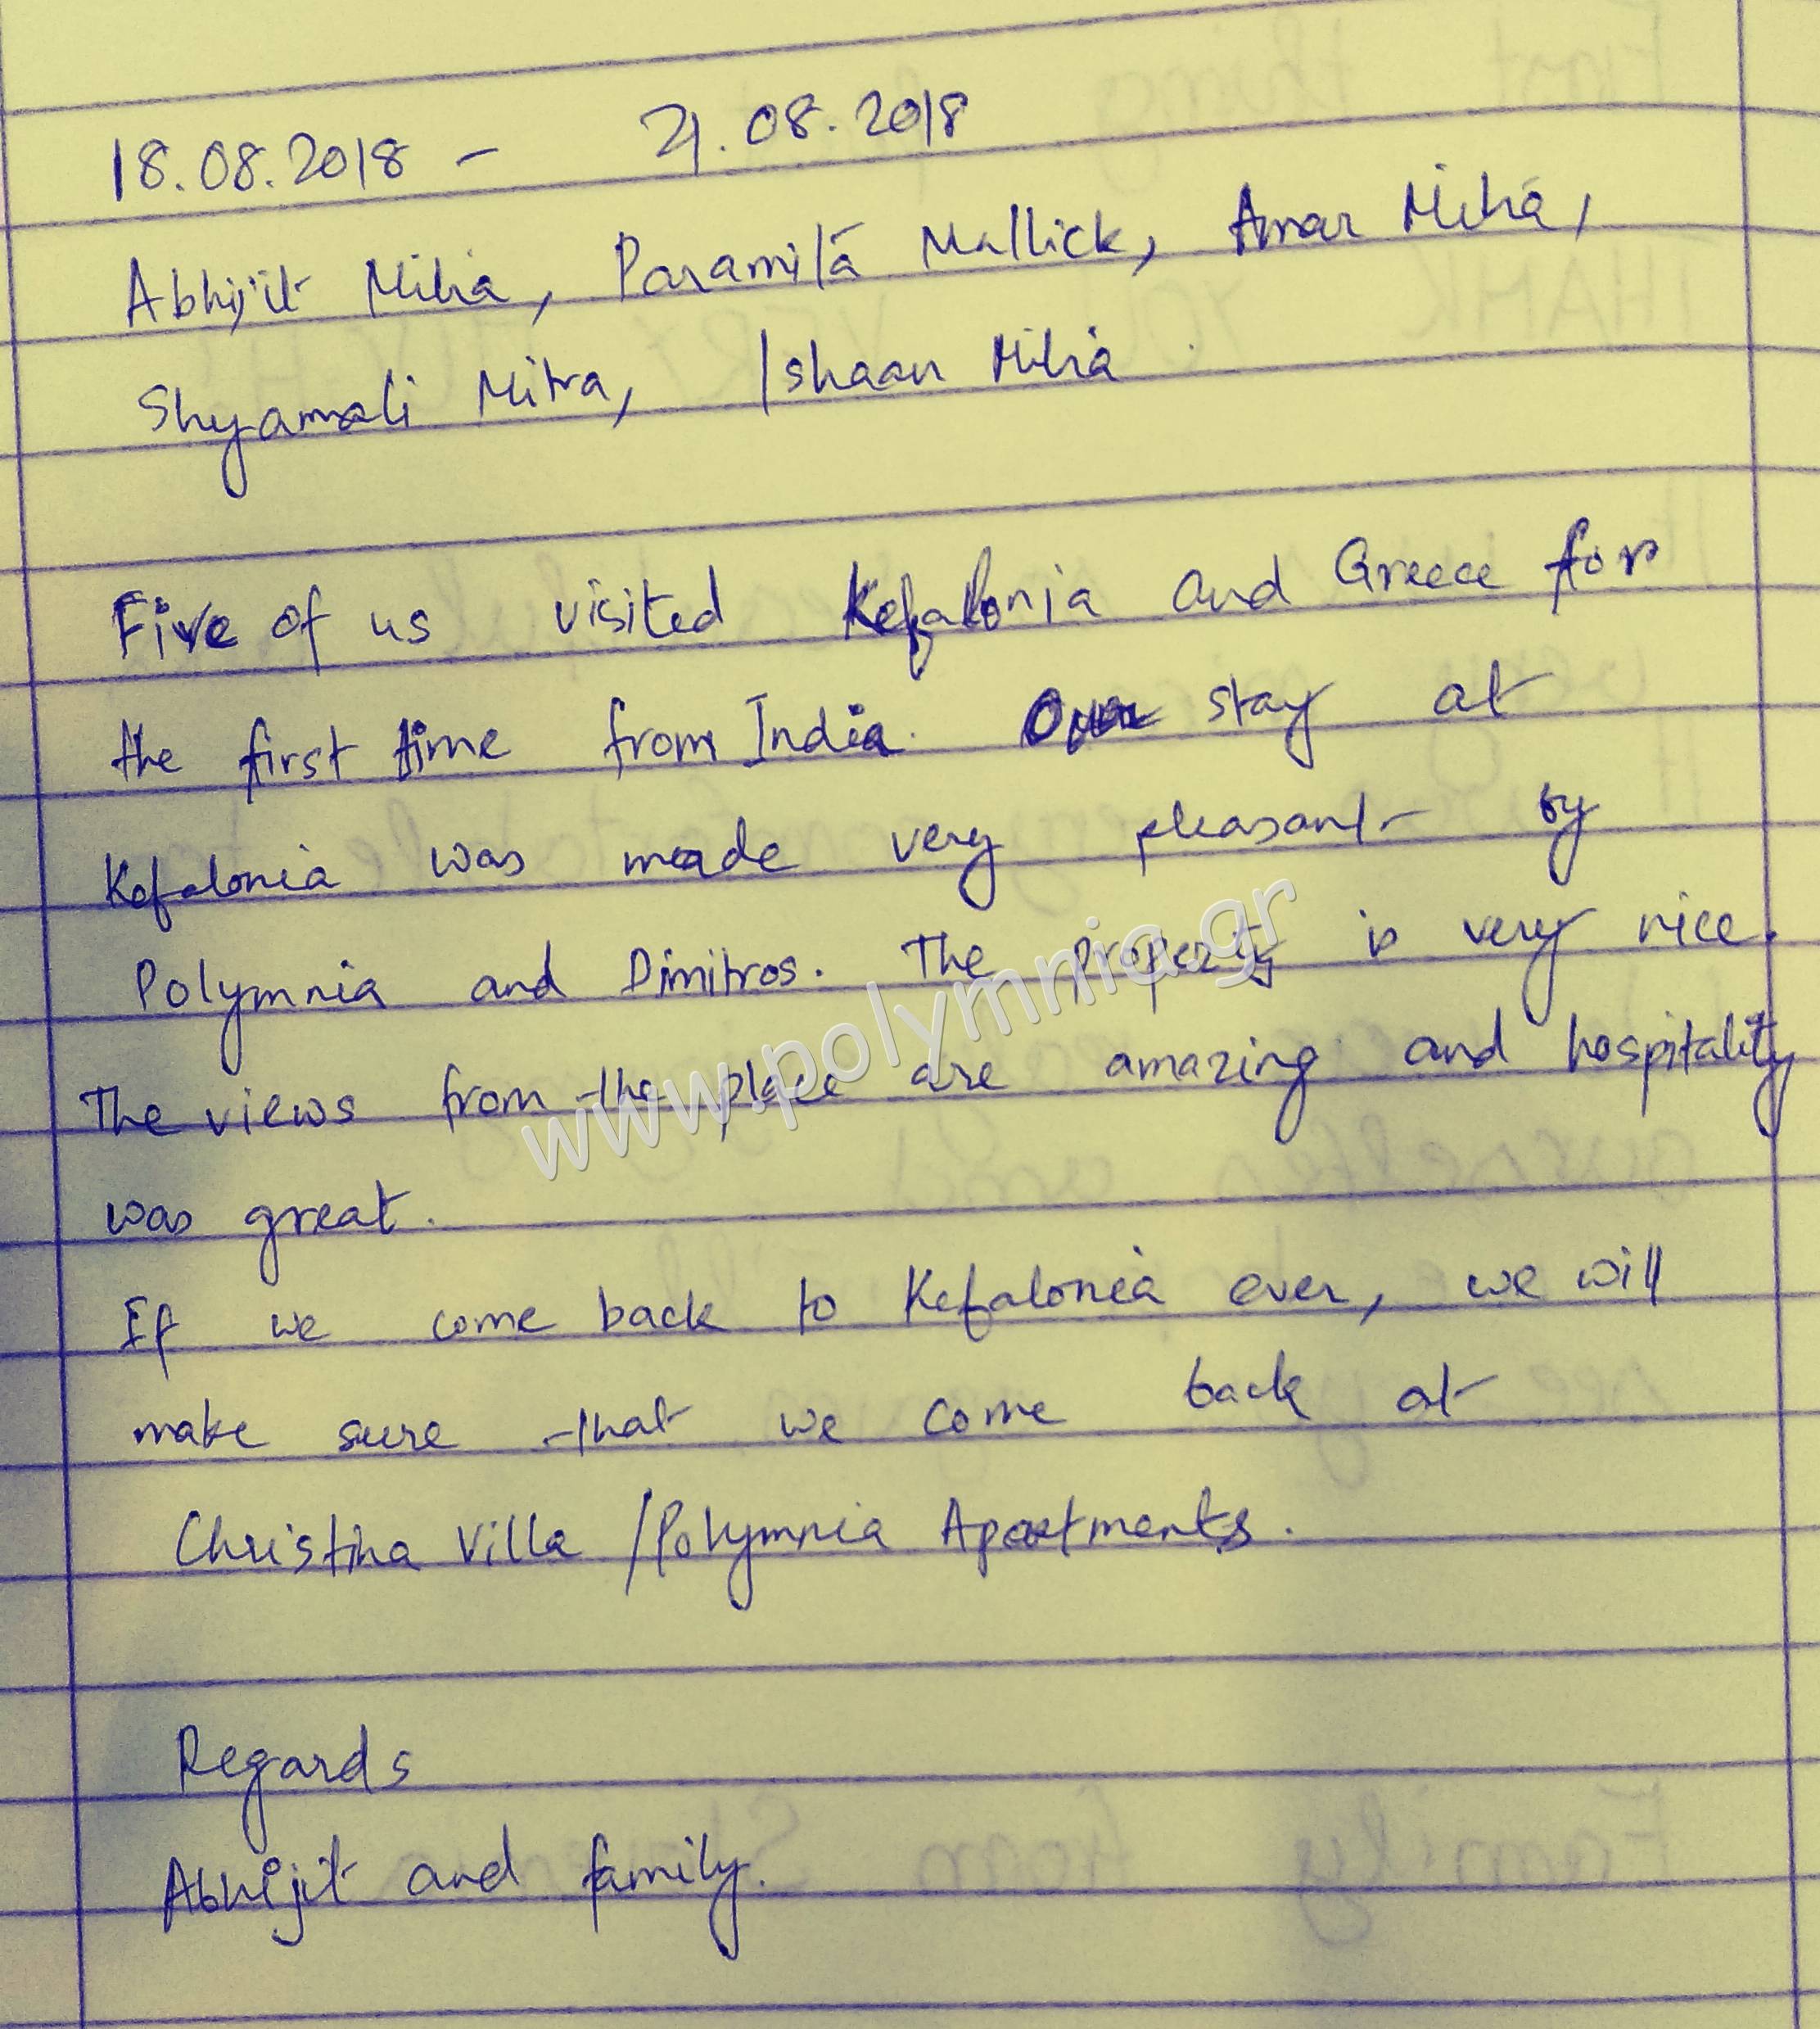 18.08.2018 - 21.08.2018
Abhijit Mitra, Paramita Mallick, Amar Mitra,
Shyamali Mitra, Ishaan Mitra.
Five of us visited Kefalonia and Greece for
the first time from India. Our stay at
Kefalonia was made very pleasant by
Polymnia and Dimitros. The property is very nice.
The views from the place are amazing and hospitality
was great.
If we come back to Kefalonia ever, we will
make sure that we come back at
Christina Villa / Polymnia Apartments.
Regards
Abhijit and family.
www.polymnia.gr